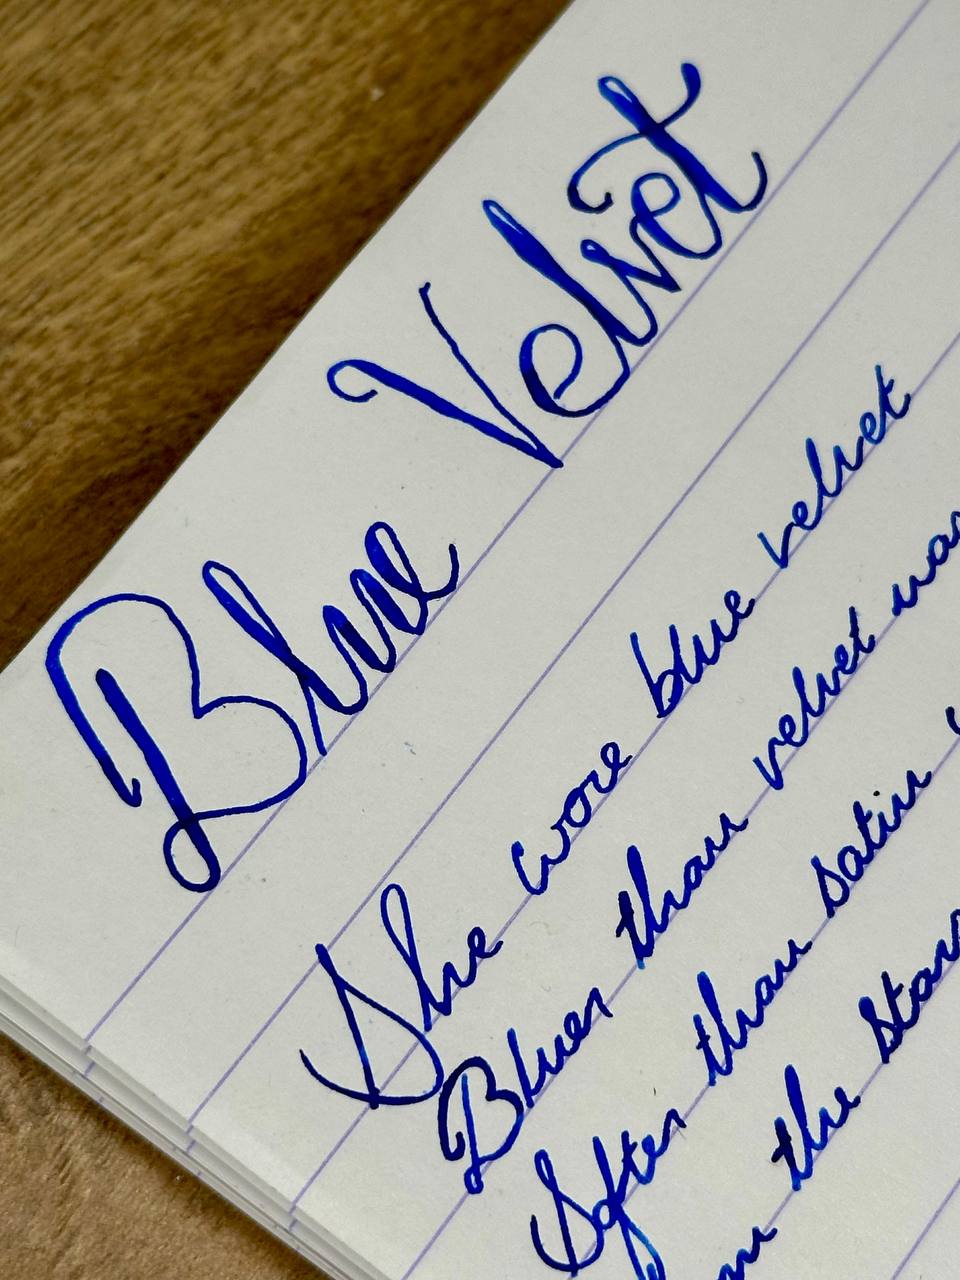 Blue Velvet
She wore blue velvet
Bluer than velvet
Softer than satin
the